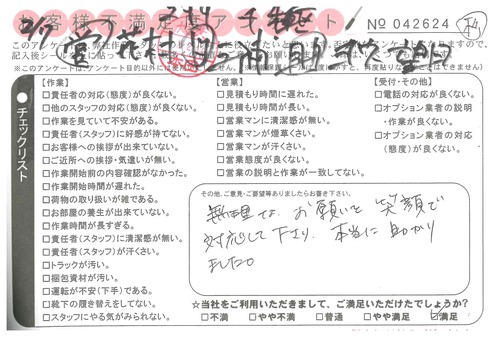 お客様不満足度アンケート！
No 042624
記入後シール
(※このアンケートはアンケート目的以外には使用
チェックリスト
【作業】
□責任者の対応(態度)が良くない。
□他のスタッフの対応(態度)が良くない。
□作業を見ていて不安がある。
□責任者(スタッフ)に好感が持てない。
□お客様への挨拶が出来ていない。
□ご近所への挨拶・気遣いが無い。
□作業開始前の内容確認がなかった。
□作業開始時間が遅れた。
□荷物の取り扱いが雑である。
□お部屋の養生が出来ていない。
□作業時間が長すぎる。
□責任者(スタッフ)に清潔感が無い。
□責任者(スタッフ)が汗くさい。
□トラックが汚い。
□梱包資材が汚い。
□運転が不安(下手)である。
□靴下の履き替えをしてない。
□スタッフにやる気がみられない。
【営業】
□見積もり時間に遅れた。
□見積もり時間が長い。
□営業マンに清潔感が無い。
□営業マンが煙草くさい。
□営業マンが汗くさい。
□営業態度が良くない。
□営業の説明と作業が一致してない。
【受付・その他】
□電話の対応が良くない。
□オプション業者の説明
・作業が良くない。
□オプション業者の対応
(態度)が良くない。
その他、ご意見・ご要望等ありましたらお書き下さい。
無理なお願いを笑顔で
対応して下さり、本当に助かり
ました。
☆当社をご利用いただきまして、ご満足いただけたでしょうか？
□不満 □やや不満 □普通 □やや満足 □満足